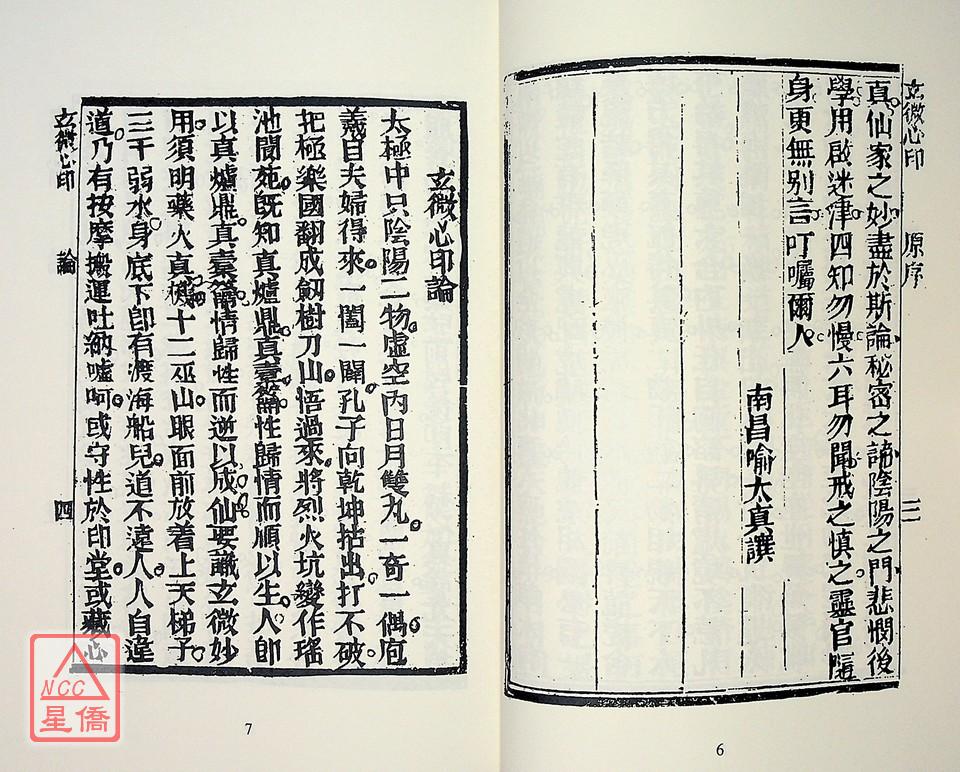 玄微心印
原序
三
真仙家之妙盡於斯論秘密之諦陰陽之門悲憫後
學用啟迷津四知勿慢六耳勿聞戒之慎之靈官隨
身更無別言叮囑爾人
南昌喻太真譔
6
玄微心印論
太極中只陰陽二物虛空內日月雙丸一奇一偶庖
羲自夫婦得來一闔一闢孔子向乾坤拈出打不破
把極樂國翻成劒樹刀山悟過來將烈火坑變作瑤
池閬苑既知真爐鼎真橐籥性歸情而順以生人即
以真爐鼎真橐籥情歸性而逆以成仙要識玄微妙
用須明藥火真機十二巫山眼面前放着上天梯子
三千弱水身底下卽有渡海船兒道不遠人人自違
道乃有按摩搬運吐納噓呵或守性於印堂或藏心
玄微心印
論
四
7
NCC
星僑